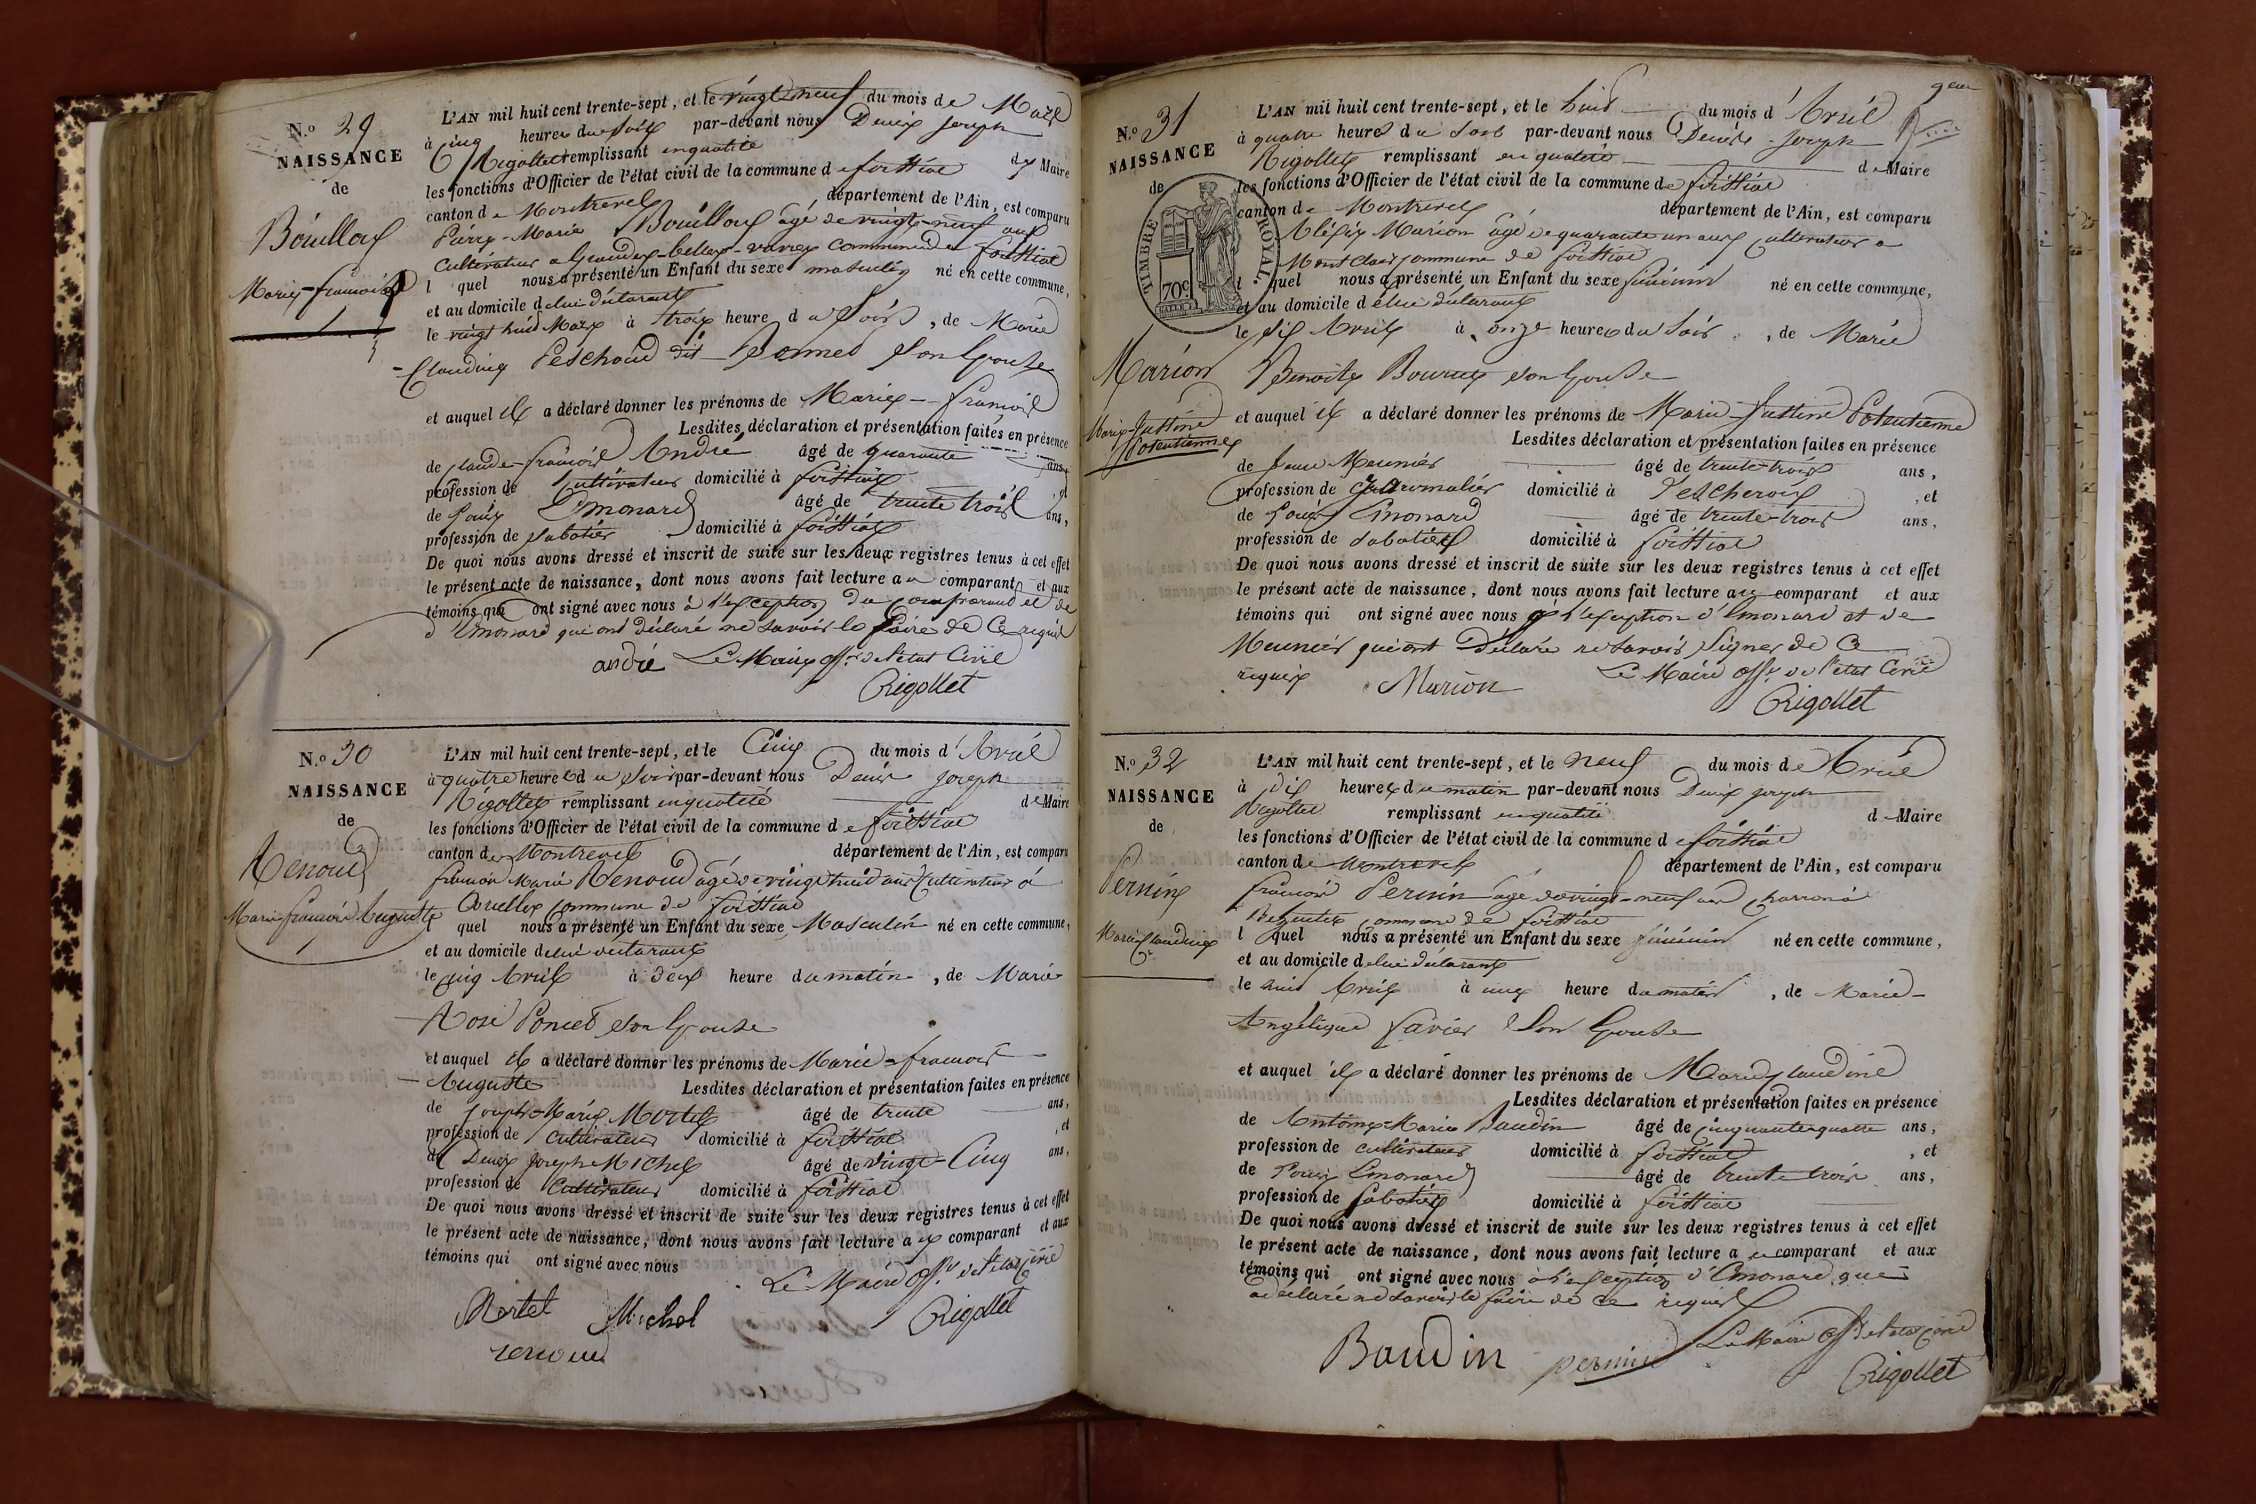 N.o 29
NAISSANCE
de
Bouilloux
Marie-françois
L'AN mil huit cent trente-sept, et le vingt neuf du mois de Mars
à cinq heures du soir par-devant nous Denis Joseph
Rigollet remplissant en qualité de Maire
les fonctions d'Officier de l'état civil de la commune de foissiat
canton de Montrevel département de l'Ain, est comparu
Pierre-Marie Bouilloux âgé de vingt-neuf ans
Cultivateur a Grandes-belles-varres Commune de foissiat
l quel nous a présenté un Enfant du sexe masculin né en cette commune,
et au domicile de lui déclarant
le vingt huit Mars à trois heure du Soir, de Marie
Claudine Peschoud dit Bonnet Son Epouse
et auquel il a déclaré donner les prénoms de Marie-françois
Lesdites déclaration et présentation faites en présence
de Claude-françois André âgé de quarante ans,
profession de Cultivateur domicilié à foissiat, et
de Louis Emonard âgé de trente trois ans,
profession de Sabotier domicilié à foissiat
De quoi nous avons dressé et inscrit de suite sur les deux registres tenus à cet effet
le présent acte de naissance, dont nous avons fait lecture au comparant et aux
témoins qui ont signé avec nous à l'exception du comparant et de
d'Emonard qui ont déclaré ne savoir le faire de ce requis
andré Le Maire off. de l'état Civil
Rigollet
N.o 30
NAISSANCE
de
Renoud
Marie françois Auguste
L'AN mil huit cent trente-sept, et le Cinq du mois d'Avril
à quatre heures du soir par-devant nous Denis Joseph
Rigollet remplissant en qualité de Maire
les fonctions d'Officier de l'état civil de la commune de foissiat
canton de Montrevel département de l'Ain, est comparu
françois Marie Renoud âgé de vingt huit ans Cultivateur à
Cornelles commune de foissiat
l quel nous a présenté un Enfant du sexe Masculin né en cette commune,
et au domicile de lui déclarant
le cinq Avril à deux heure du matin, de Marie
Rose Poncet Son Epouse
et auquel il a déclaré donner les prénoms de Marie-françois
Auguste Lesdites déclaration et présentation faites en présence
de Joseph-Marie Mortel âgé de trente ans,
profession de Cultivateur domicilié à foissiat, et
de Denis Joseph Michel âgé de vingt-Cinq ans,
profession de Cultivateur domicilié à foissiat
De quoi nous avons dressé et inscrit de suite sur les deux registres tenus à cet effet
le présent acte de naissance, dont nous avons fait lecture au comparant et aux
témoins qui ont signé avec nous
Le Maire off. de l'état Civil
Mortel Michel Rigollet
renoud
9eme
N.o 31
NAISSANCE
de
TIMBRE ROYAL
70c.
Marion
Marie-Justine
Potentienne
L'AN mil huit cent trente-sept, et le huit du mois d'Avril
à quatre heures du soir par-devant nous Denis Joseph
Rigollet remplissant en qualité de Maire
les fonctions d'Officier de l'état civil de la commune de foissiat
canton de Montrevel département de l'Ain, est comparu
Aléxis Marion âgé de quarante un ans Cultivateur a
Mont Clair commune de foissiat
l quel nous a présenté un Enfant du sexe féminin né en cette commune,
et au domicile de lui déclarant
le six Avril à onze heures du Soir, de Marie
Benoite Bourcet Son Epouse
et auquel il a déclaré donner les prénoms de Marie-Justine Potentienne
Lesdites déclaration et présentation faites en présence
de Jean Meunier âgé de trente-trois ans,
profession de domicilié à Lescheroux, et
de Louis Emonard âgé de trente-trois ans,
profession de Sabotier domicilié à foissiat
De quoi nous avons dressé et inscrit de suite sur les deux registres tenus à cet effet
le présent acte de naissance, dont nous avons fait lecture au comparant et aux
témoins qui ont signé avec nous à l'exception d'Emonard et de
Meunier qui ont Déclaré ne savoir Signer de ce
requis Marion Le Maire off. de l'état Civil
Rigollet
N.o 32
NAISSANCE
de
Pernin
Marie Claudine
L'AN mil huit cent trente-sept, et le neuf du mois de Avril
à dix heures du matin par-devant nous Denis Joseph
Rigollet remplissant en qualité de Maire
les fonctions d'Officier de l'état civil de la commune de foissiat
canton de Montrevel département de l'Ain, est comparu
françois Pernin âgé de vingt-neuf ans charron à
commune de foissiat
l quel nous a présenté un Enfant du sexe féminin né en cette commune,
et au domicile de lui déclarant
le huit Avril à une heure du matin, de Marie-
Angélique favier Son Epouse
et auquel il a déclaré donner les prénoms de Marie Claudine
Lesdites déclaration et présentation faites en présence
de Antoine-Marie Baudin âgé de cinquante-quatre ans,
profession de cultivateur domicilié à foissiat, et
de Louis Emonard âgé de trente trois ans,
profession de Sabotier domicilié à foissiat
De quoi nous avons dressé et inscrit de suite sur les deux registres tenus à cet effet
le présent acte de naissance, dont nous avons fait lecture au comparant et aux
témoins qui ont signé avec nous à l'exception d'Emonard qui
a déclaré ne savoir le faire de ce requis
Le Maire off. de l'état Civil
Baudin pernin Rigollet